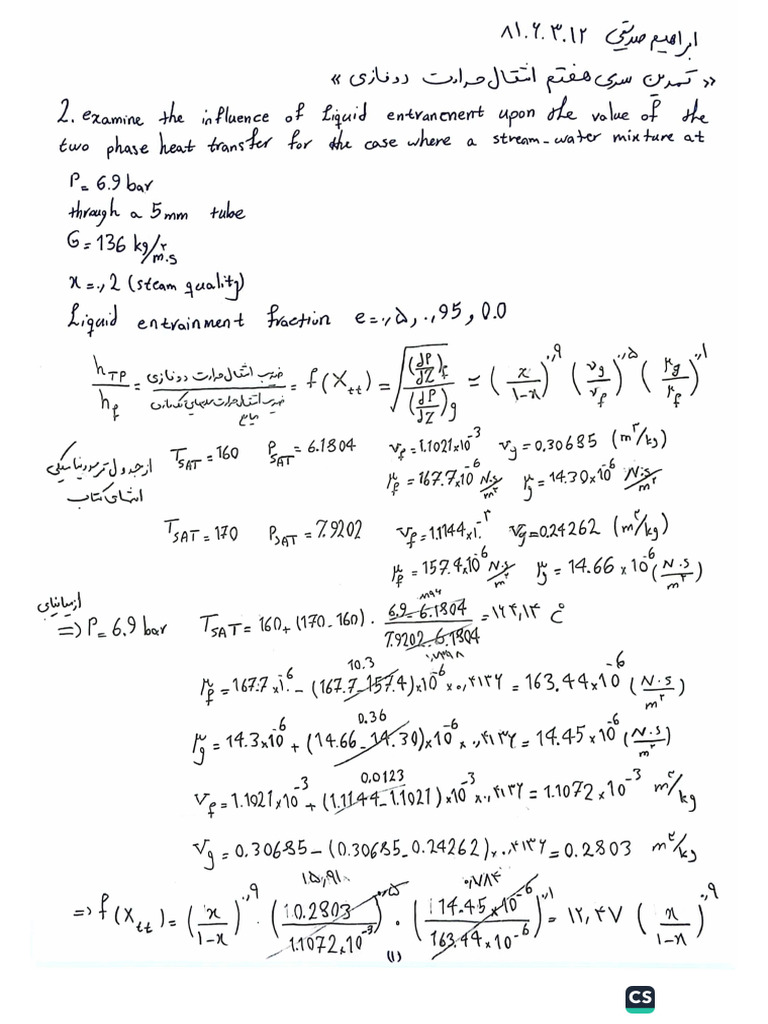 ابراهیم صدیقی ۸۱.۶.۳.۱۲
« تمرین سری هفتم انتقال حرارت دوفازی »
2. examine the influence of liquid entranenent upon the value of the
two phase heat transfer for the case where a stream-water mixture at
P= 6.9 bar
through a 5mm tube
G= 136 kg/m².s
x=.,2 (steam quality)
Liquid entrainment fraction e=.,۵, .,95, 0.0
h_TP/h_f = ضریب انتقال حرارت دوفازی / ضریب انتقال حرارت = f(X_tt) = √((dP/dZ)_f/(dP/dZ)_g) = (x/1-x)^.,۹ (ν_g/ν_f)^.,۵ (μ_g/μ_f)^.,۱
از جدول ترمودینامیکی انتهای کتاب T_SAT=160 P_SAT=6.1804 ν_f=1.1021x10^-3 ν_g=0.30685 (m³/kg)
μ_f=167.7x10^-6 N.s/m² μ_g=14.30x10^-6 N.s/m²
T_SAT=170 P_SAT=7.9202 ν_f=1.1144x1.^-۳ ν_g=0.24262 (m³/kg)
μ_f=157.4x10^-6 N.s/m² μ_g=14.66x10^-6 (N.s/m²)
=> P=6.9 bar T_SAT=160+(170-160). 6.9-6.1804/7.9202-6.1804 =۱۶۴,۱۴
10.3
μ_f=167.7x1.^-6 -(167.7-157.4)x10^-6 x.,۴۱۳۶=163.44x10^-6 (N.s/m²)
0.36
μ_g=14.3x10^-6 +(14.66-14.30)x10^-6 x.,۴۱۳۶=14.45x10^-6 (N.s/m²)
0.0123
ν_f=1.1021x10^-3 +(1.1144-1.1021)x10^-3 x.,۴۱۳۶=1.1072x10^-3 m³/kg
ν_g=0.30685-(0.30685-0.24262)x.,۴۱۳۶=0.2803 m³/kg
۱۵,۹۱ .,۷۸۴
=> f(X_tt)=(x/1-x)^.,۹ .(0.2803/1.1072x10^-3)^.,۵ .(14.45x10^-6/163.44x10^-6)^.,۱ =۱۲,۴۷ (x/1-x)^.,۹
(۱)
CS